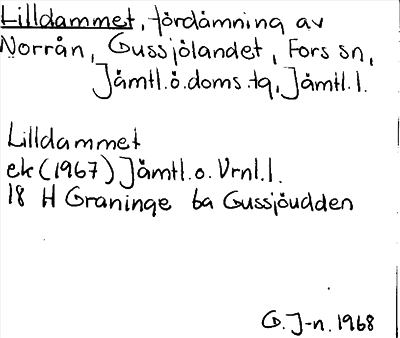 Lilldammet, fördämning av
Norrån, Gussjölandet, Fors sn,
Jämtl.ö.doms.tg, Jämtl.l.
Lilldammet
ek (1967) Jämtl.o. Vrnl.l.
18 H Graninge ba Gussjöudden
G. J-n. 1968